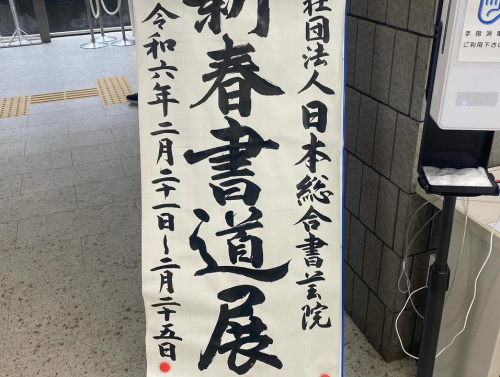 社団法人日本総合書芸院
新春書道展
令和六年二月二十一日～二月二十五日
手指消毒
ご利用下さい